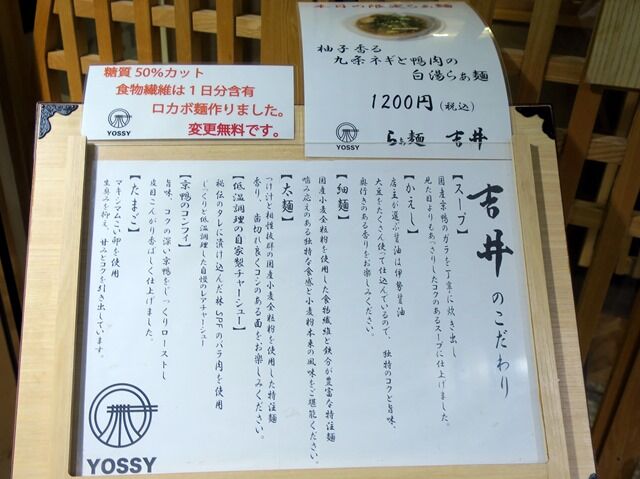 本日の限定らぁ麺
柚子香る
九条ネギと鴨肉の
白湯らぁ麺
1200円（税込）
らぁ麺 吉井
YOSSY
糖質50%カット
食物繊維は1日分含有
ロカボ麺作りました。
変更無料です。
YOSSY
吉井のこだわり
【スープ】
国産京鴨のガラを丁寧に炊き出し
見た目よりもあっさりしたコクのあるスープに仕上げました。
【かえし】
店主が選ぶ醤油は伊勢醤油
大豆をたくさん使って仕込んでいるので、独特のコクと旨味、
奥行きのある香りをお楽しみください。
【細麺】
国産小麦全粒粉を使用した食物繊維と鉄分が豊富な特注麺
噛み応えのある独特な食感と小麦粉本来の風味をご堪能ください。
【太麺】
つけ汁と相性抜群の国産小麦全粒粉を使用した特注麺
香り、歯切れ良くコシのある面をお楽しみください。
【低温調理の自家製チャーシュー】
秘伝のタレに漬け込んだ林SPFのバラ肉を使用
じっくりと低温調理した自慢のレアチャーシュー
【京鴨のコンフィ】
旨味、コクの深い京鴨をじっくりローストし
皮目こんがり香ばしく仕上げました。
【たまご】
マキシマムこい卵を使用
生臭みを抑え、甘みとコクを引き出しています。
YOSSY